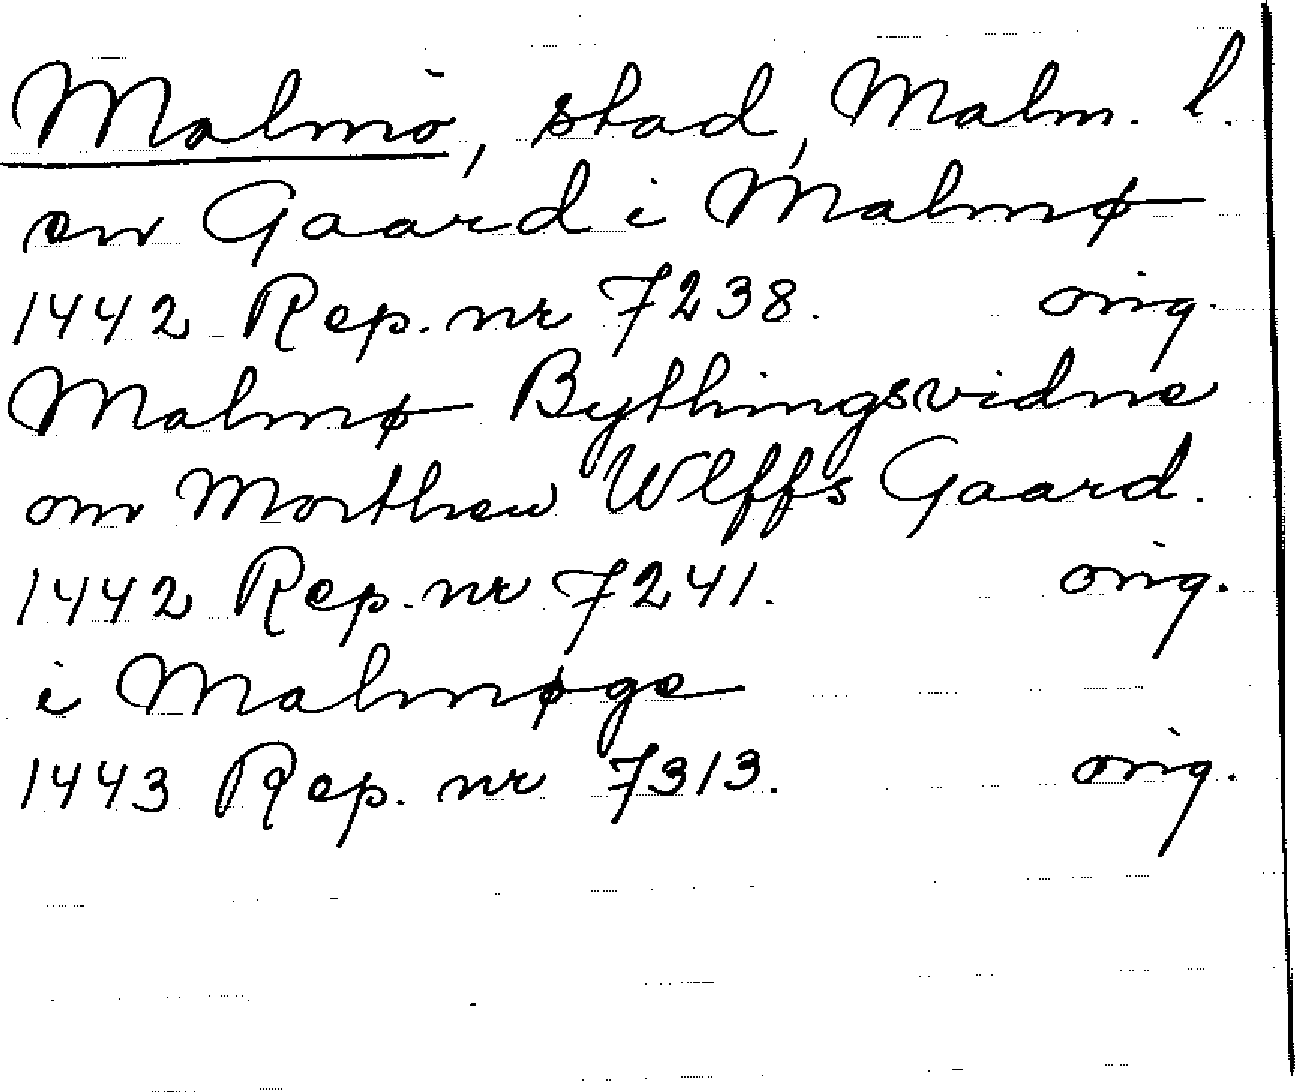 Malmö, stad, Malm. l.
en Gaard i Malmø
1442 Rep. nr 7238. orig.
Malmø Bythingsvidne
om Morthen Wlffs Gaard.
1442 Rep. nr 7241. orig.
i Malmøge
1443 Rep. nr 7313. orig.